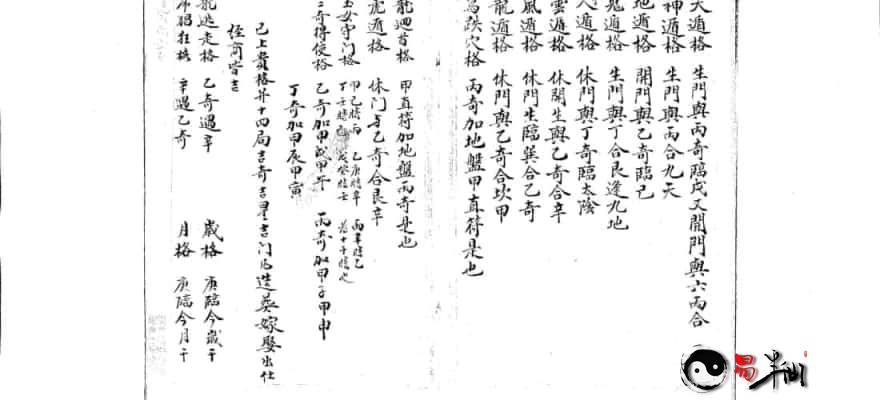 天遁格 生門與丙奇臨戊又開門與六丙合
神遁格 生門與丙合九天
地遁格 開門與乙奇臨己
鬼遁格 生門與丁合艮逢九地
人遁格 休門與丁奇臨太陰
雲遁格 休開生與乙奇合辛
風遁格 休門生臨巽合乙奇
龍遁格 休門與乙奇合坎甲
鳥跌穴格 丙奇加地盤甲直符是也
龍迴首格 甲直符加地盤丙奇是也
虎遁格 休门与乙奇合艮辛
玉女守門格 甲己時丙 乙庚時辛 丙辛時乙
丁壬時己 戊癸時壬
奇得使格 乙奇加甲戌甲午 丙奇加甲子甲申
丁奇加甲辰甲寅
已上貴格并十四局吉奇吉星吉门凡造葬嫁娶出仕
經商皆吉
龍逃走格 乙奇遇辛 歲格 庚臨今歲干
猖狂格 辛遇乙奇 月格 庚臨今月干
易半仙